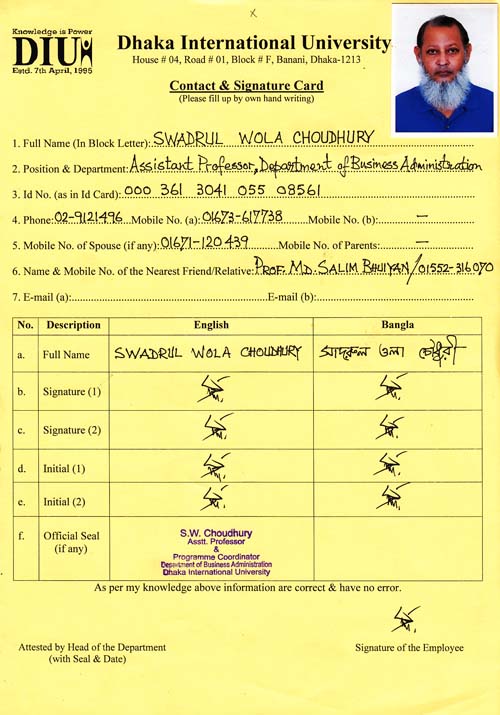 x
Knowledge is Power
DIU
Estd. 7th April, 1995
Dhaka International University
House # 04, Road # 01, Block # F, Banani, Dhaka-1213
Contact & Signature Card
(Please fill up by own hand writing)
1. Full Name (In Block Letter): SWADRUL WOLA CHOUDHURY
2. Position & Department: Assistant Professor, Department of Business Administration
3. Id No. (as in Id Card): 000 361 3041 055 08561
4. Phone: 02-9121496 Mobile No. (a): 01673-617738 Mobile No. (b): —
5. Mobile No. of Spouse (if any): 01671-120439 Mobile No. of Parents: —
6. Name & Mobile No. of the Nearest Friend/Relative: PROF. MD. SALIM BHUIYAN/01552-316070
7. E-mail (a): E-mail (b):
No. Description English Bangla
a. Full Name SWADRUL WOLA CHOUDHURY সাদরুল ওলা চৌধুরী
b. Signature (1)
c. Signature (2)
d. Initial (1)
e. Initial (2)
f. Official Seal (if any)
S.W. Choudhury
Asstt. Professor
&
Programme Coordinator
Department of Business Administration
Dhaka International University
As per my knowledge above information are correct & have no error.
Attested by Head of the Department
(with Seal & Date)
Signature of the Employee